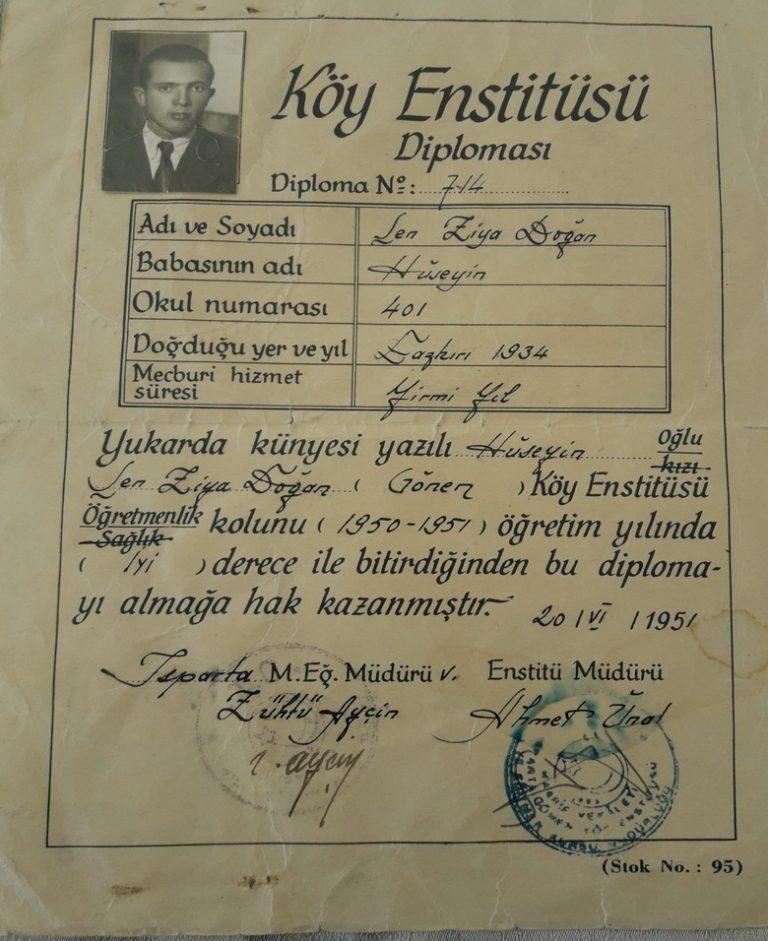 Köy Enstitüsü
Diploması
Diploma Nº: 714
Adı ve Soyadı Şen Ziya Doğan
Babasının adı Hüseyin
Okul numarası 401
Doğduğu yer ve yıl Dazkırı 1934
Mecburi hizmet süresi Yirmi Yıl
Yukarda künyesi yazılı Hüseyin Oğlu kızı
Şen Ziya Doğan ( Gönen ) Köy Enstitüsü
Öğretmenlik Sağlık kolunu ( 1950-1951 ) öğretim yılında
( İyi ) derece ile bitirdiğinden bu diploma-
yı almağa hak kazanmıştır. 20 / VI / 1951
Isparta M.Eğ. Müdürü v. Enstitü Müdürü
Zühtü Ayçin Ahmet Ünal
Z. ayçin
(Stok No.: 95)